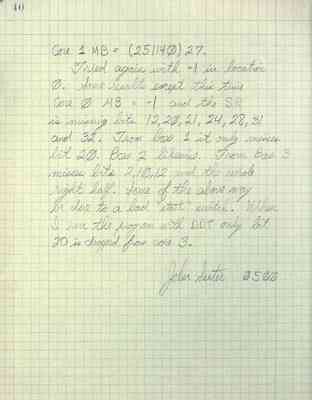 40
Core 1 MB = (251140) 27.
Tried again with -1 in location
0. Same results except this time
Core 0 MB = -1 and the SR
is missing bits 12, 20, 21, 24, 28, 31
and 32. From box 1 it only misses
bit 20. Box 2 likewise. From box 3
misses bits 2, 10, 12 and the whole
right half. Some of the above may
be due to a bad "start" switch. When
I run the program with DDT only bit
20 is dropped from core 3.
John 0500